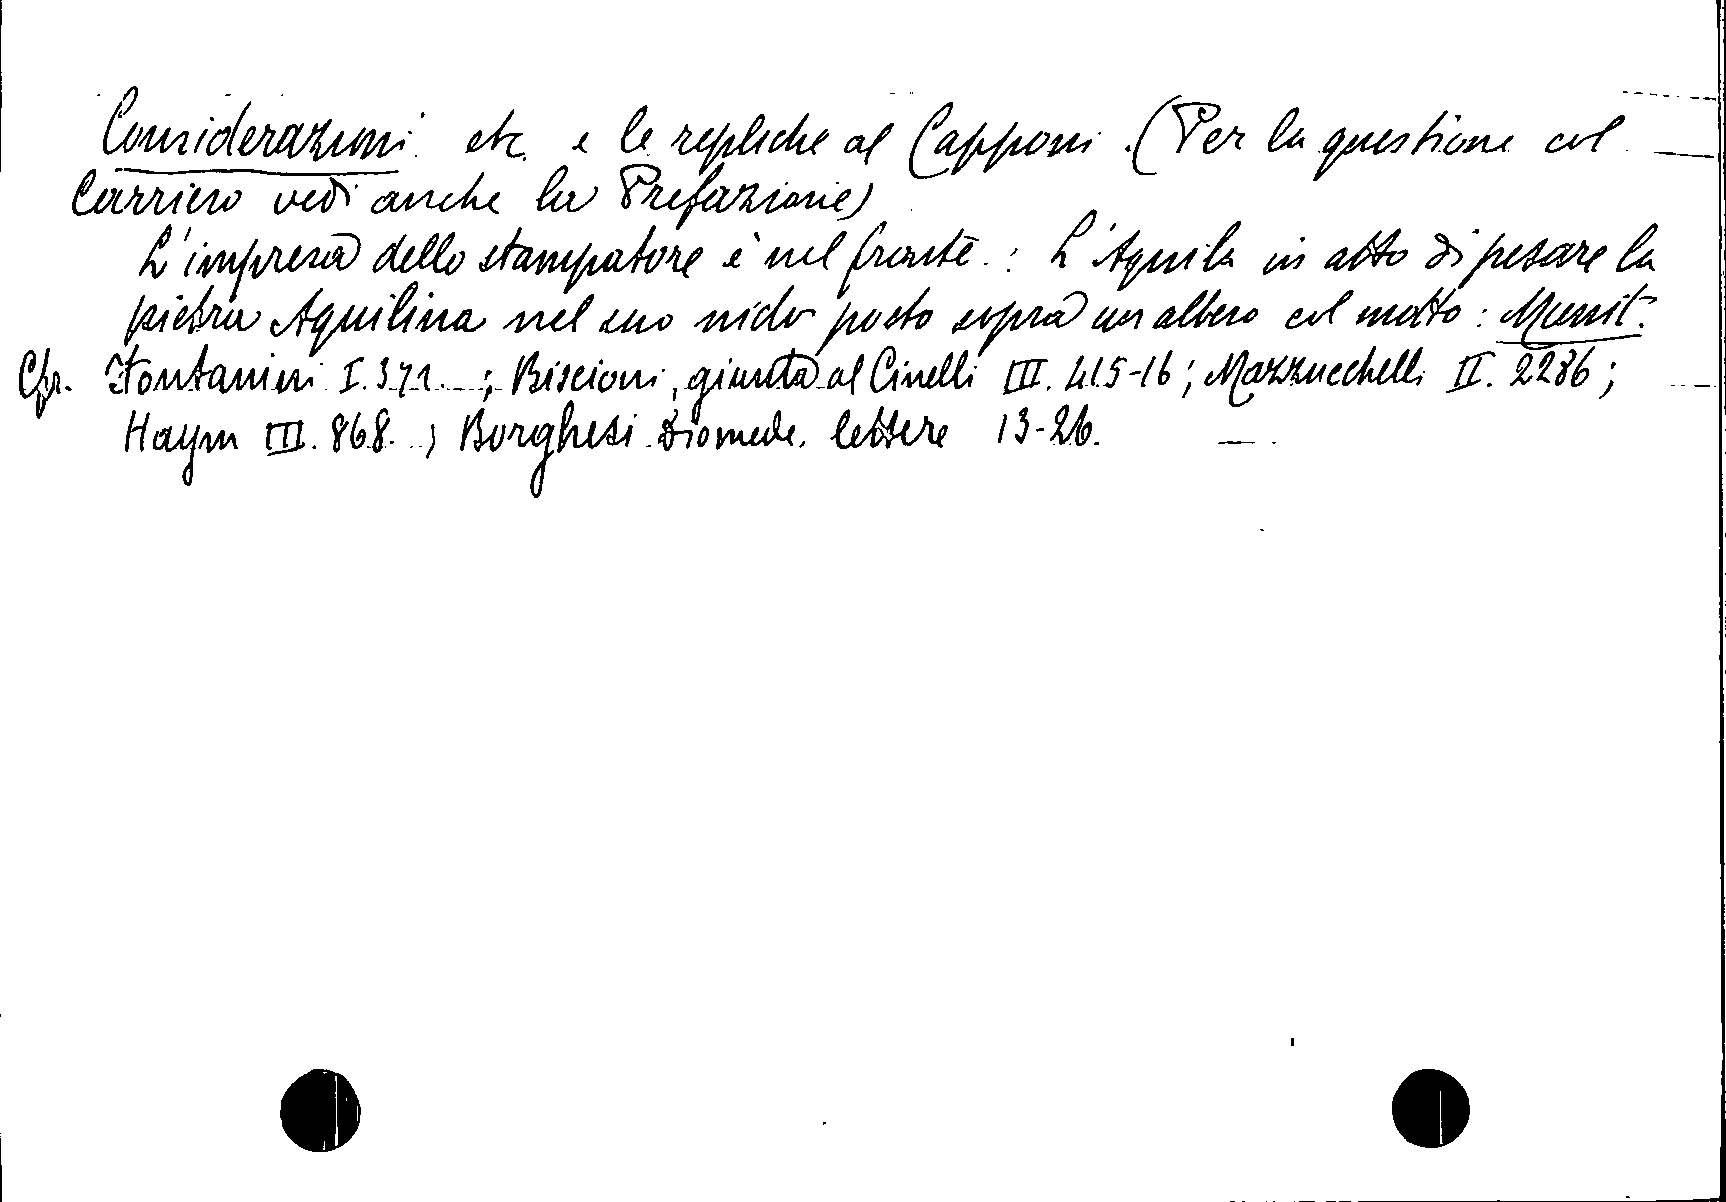 Considerazioni etc. e le repliche al Capponi. (Per la questione col
Carriero vedi anche la Prefazione)
L'impresa dello stampatore è nel fronte.: L'Aquila in atto di pesare la
pietra Aquilina nel suo nido posto sopra un albero col motto: Munit.
Cfr. Fontanini I. 371. ; Biscioni, giunta al Cinelli III. 415-16; Mazzucchelli II. 2286;
Haym III. 868. ; Borghesi Diomede. lettere 13-26. —